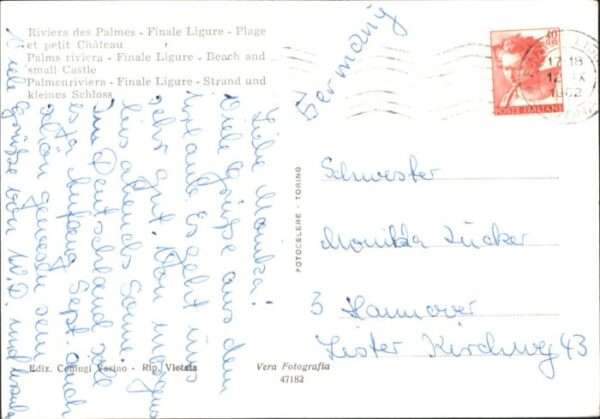 Riviera des Palmes - Finale Ligure - Plage
et petit Château
Palms riviera - Finale Ligure - Beach and
small Castle
Palmenriviera - Finale Ligure - Strand und
kleines Schloss
Germany
Liebe Monika!
Viele Grüße aus dem
Urlaub. Es geht uns
sehr gut. Von morgens
bis abends Sonne.
In Deutschland soll
es ja Anfang Sept. auch
schön gewesen sein.
Viele Grüße von W.D. und
Schwester
Monika Zücker
3 Hannover
Lister Kirchweg 43
POSTE ITALIANE
17-18
12 IX
FOTOCELERE - TORINO
Vera Fotografia
47182
Ediz. Rip. Vietata